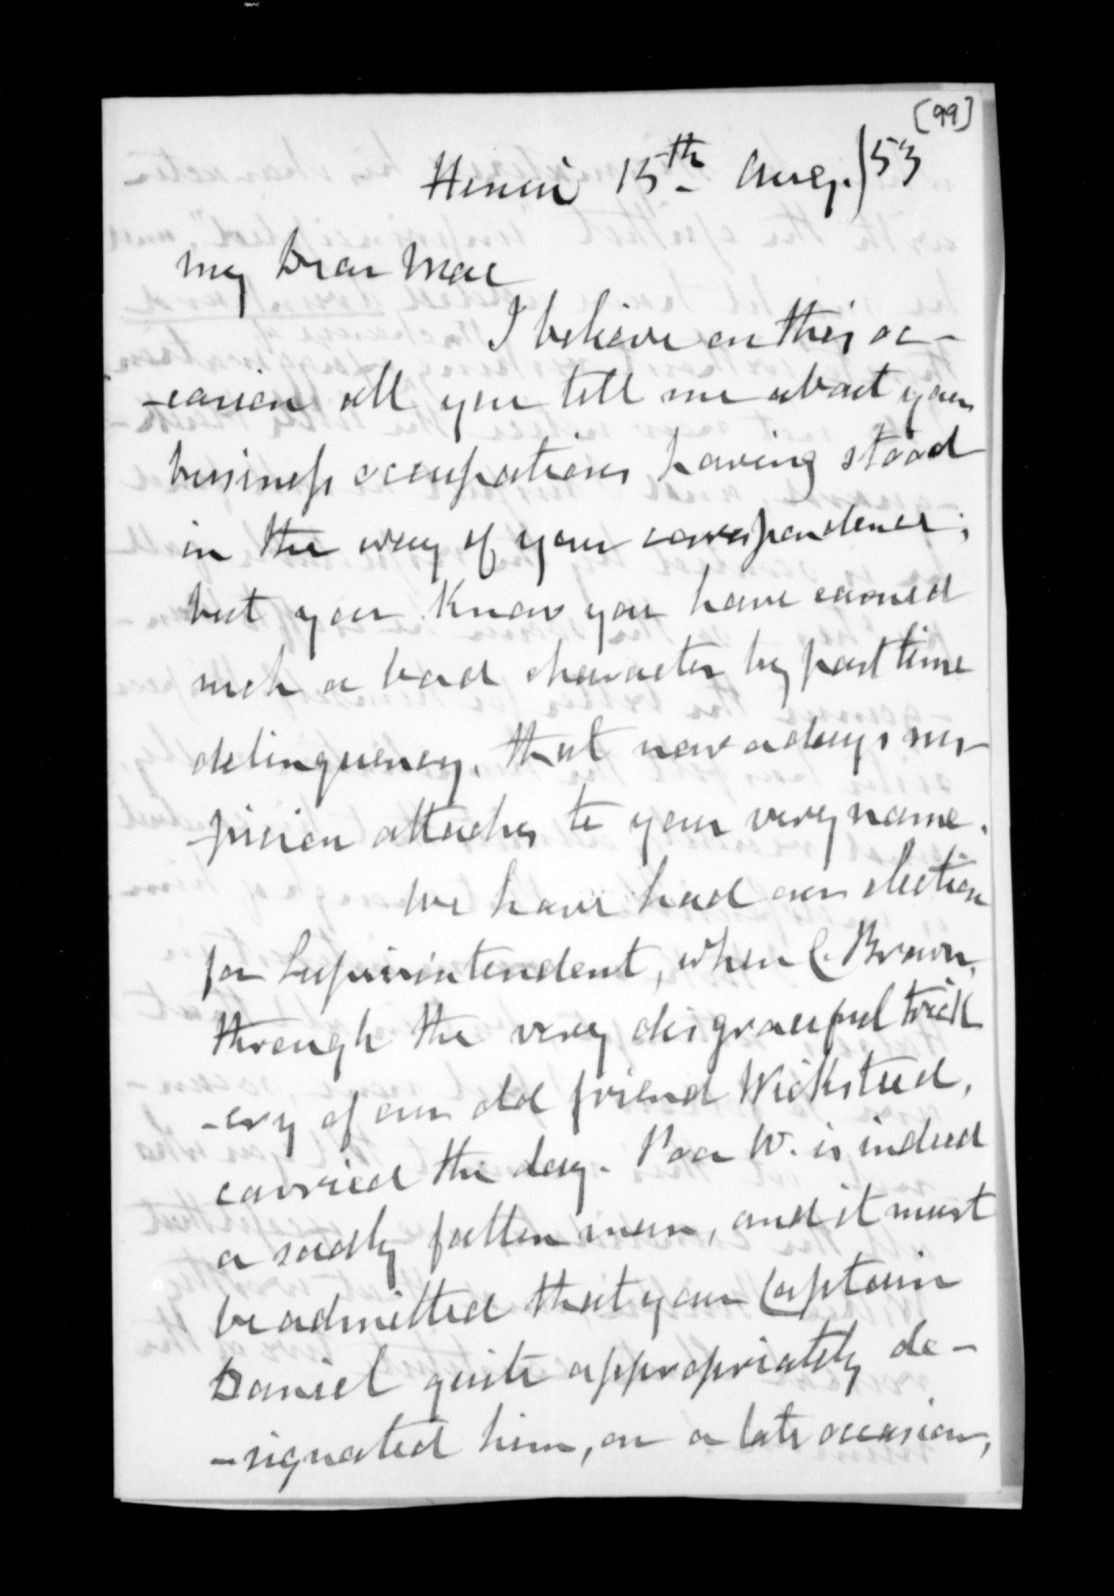 [99]
Henui 15th Aug. /53
My Dear Mac
I believe on this oc-
-casion all you tell me about your
business occupations having stood
in the way of your correspondence;
but you know you have earned
such a bad character by past time
delinquency, that now a days sus-
-picion attaches to your very name.
We have had our election
for Superintendent, when C. Brown,
through the very disgraceful trick
-ery of our old friend Wicksteed,
carried the day. Poor W. is indeed
a sadly fallen man, and it must
be admitted that your Captain
Daniel quite appropriately de-
-signated him, on a late occasion,